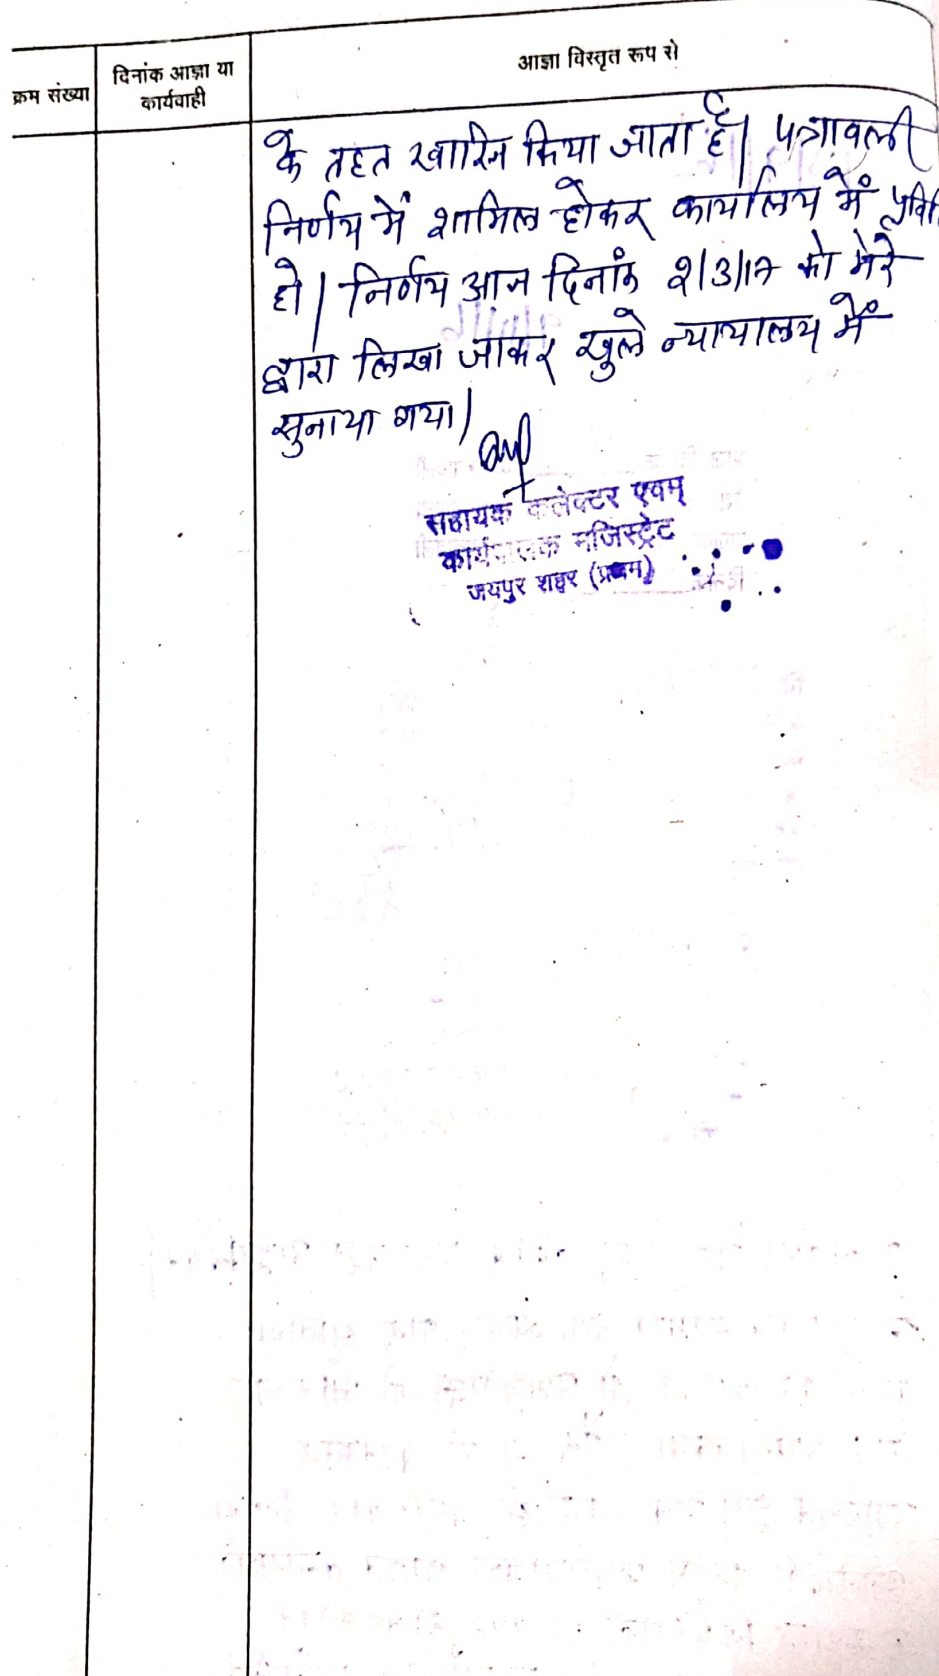 क्रम संख्या
दिनांक आज्ञा या
कार्यवाही
आज्ञा विस्तृत रूप से
के तहत खारिज किया जाता है। पत्रावली
निर्णय में शामिल होकर कार्यालय में
हो। निर्णय आज दिनांक 2/3/17 को मेरे
द्वारा लिखा जाकर खुले न्यायालय में
सुनाया गया।
सहायक कलेक्टर एवम्
कार्यपालक मजिस्ट्रेट
जयपुर शहर (प्रथम)